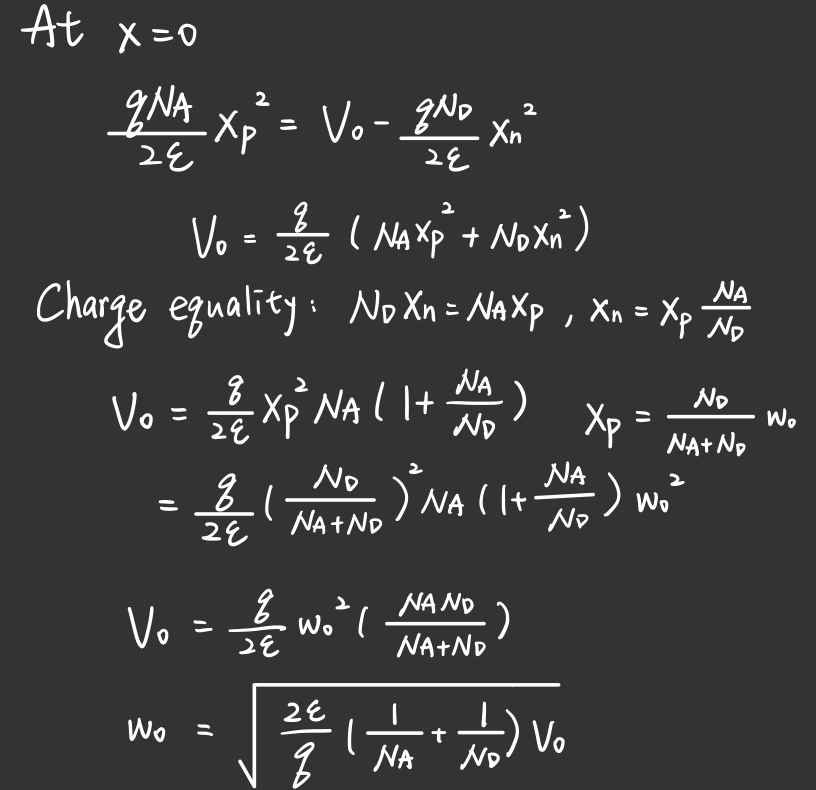 At x=0
qNA/2ε xp² = V₀ - qND/2ε xn²
V₀ = q/2ε (NAxp² + NDxn²)
Charge equality: NDxn = NAxp , xn = xp NA/ND
V₀ = q/2ε xp² NA (1+ NA/ND) xp = ND/(NA+ND) w₀
= q/2ε (ND/(NA+ND))² NA (1+ NA/ND) w₀²
V₀ = q/2ε w₀² (NAND/(NA+ND))
w₀ = √(2ε/q (1/NA + 1/ND) V₀)